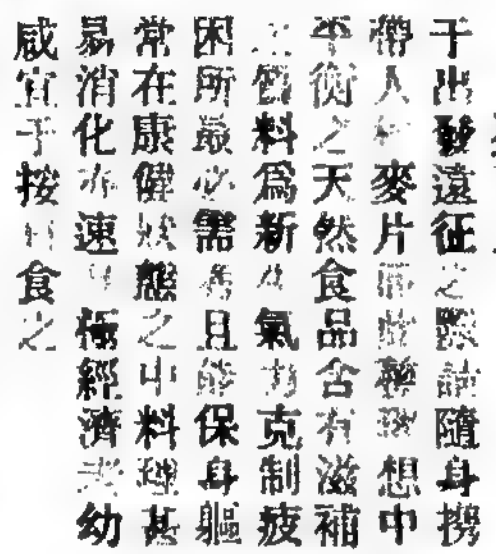 于出發遠征之際請隨身攜
帶人麥片想中
平衡之天然食品含有滋補
之質料爲新生氣力克制疲
困所最必需且能保身軀
常在康健狀態之中料理甚
易消化亦速極經濟老幼
咸宜于按日食之